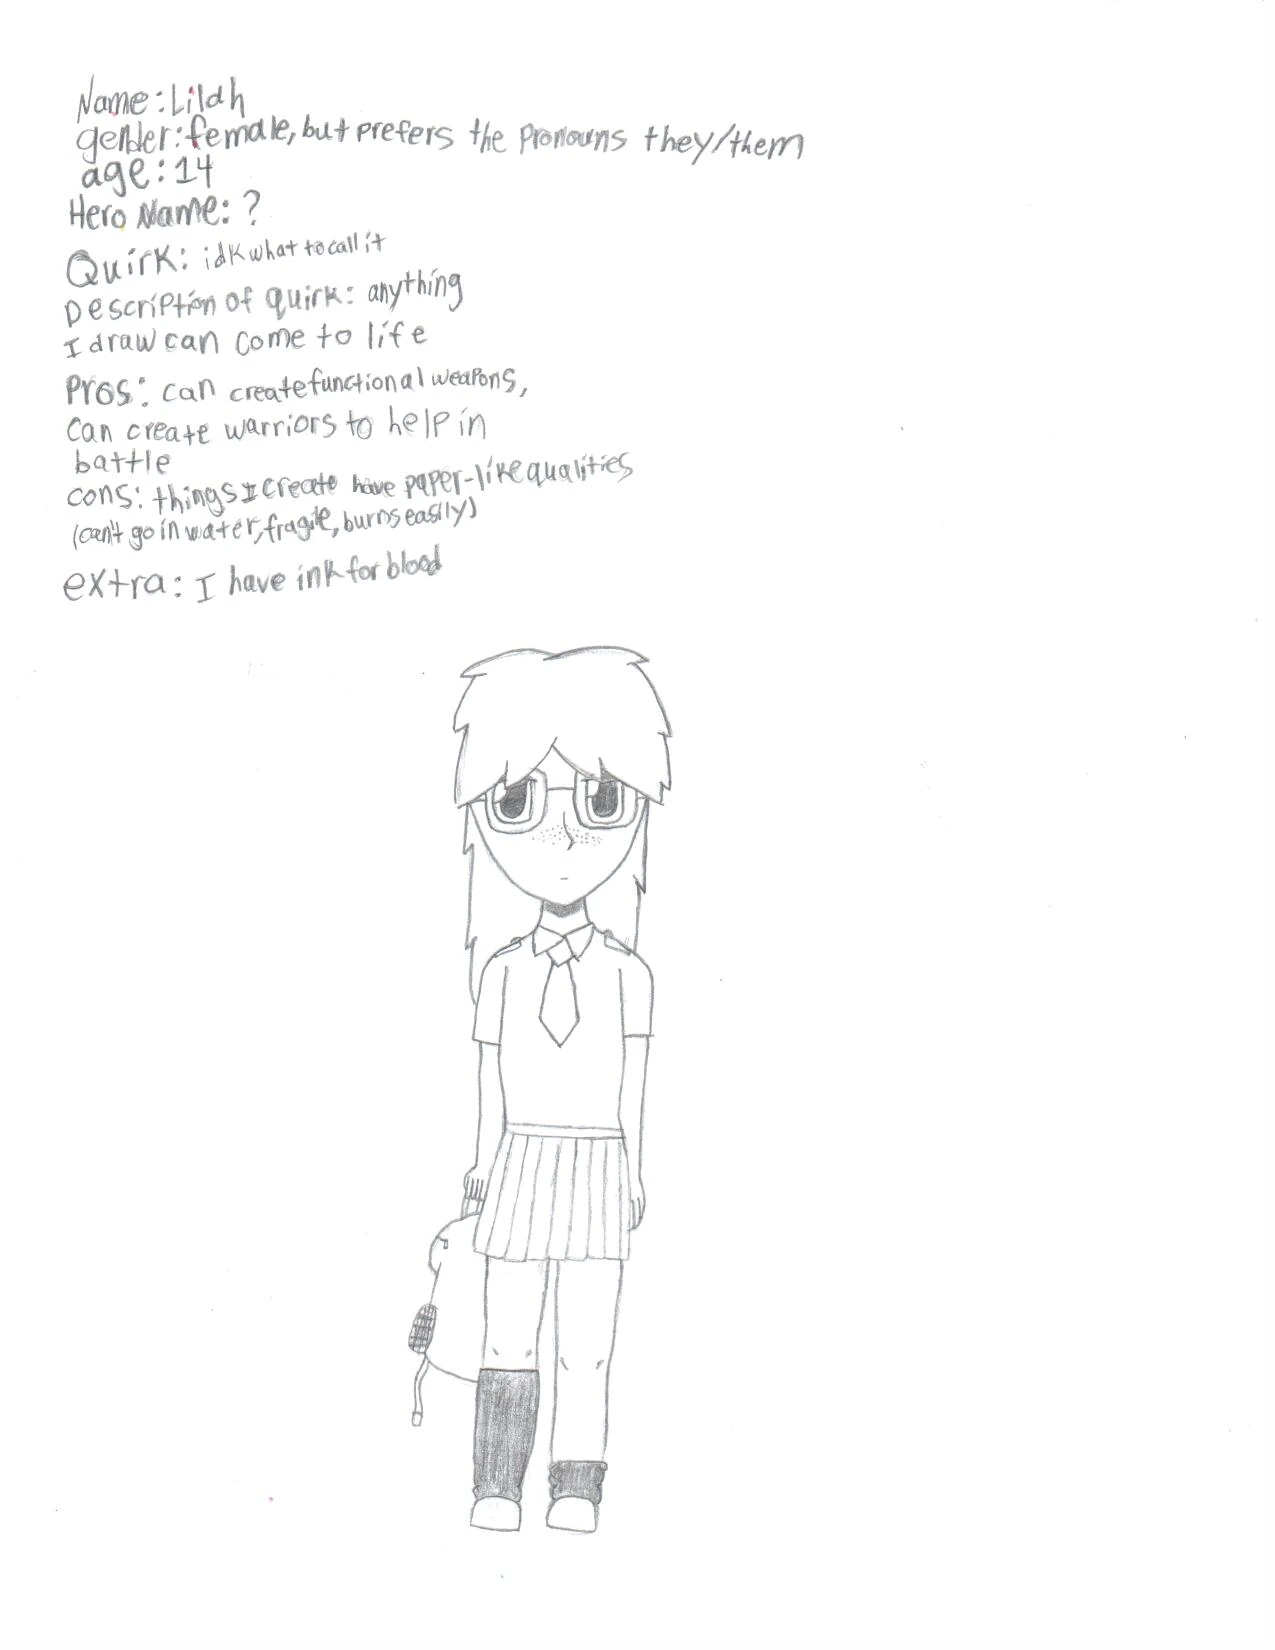 Name: Lilah
gender: female, but prefers the pronouns they/them
age: 14
Hero Name: ?
Quirk: idk what to call it
Description of quirk: anything
I draw can come to life
Pros: can create functional weapons,
can create warriors to help in
battle
cons: things I create have paper-like qualities
(can't go in water, fragile, burns easily)
extra: I have ink for blood